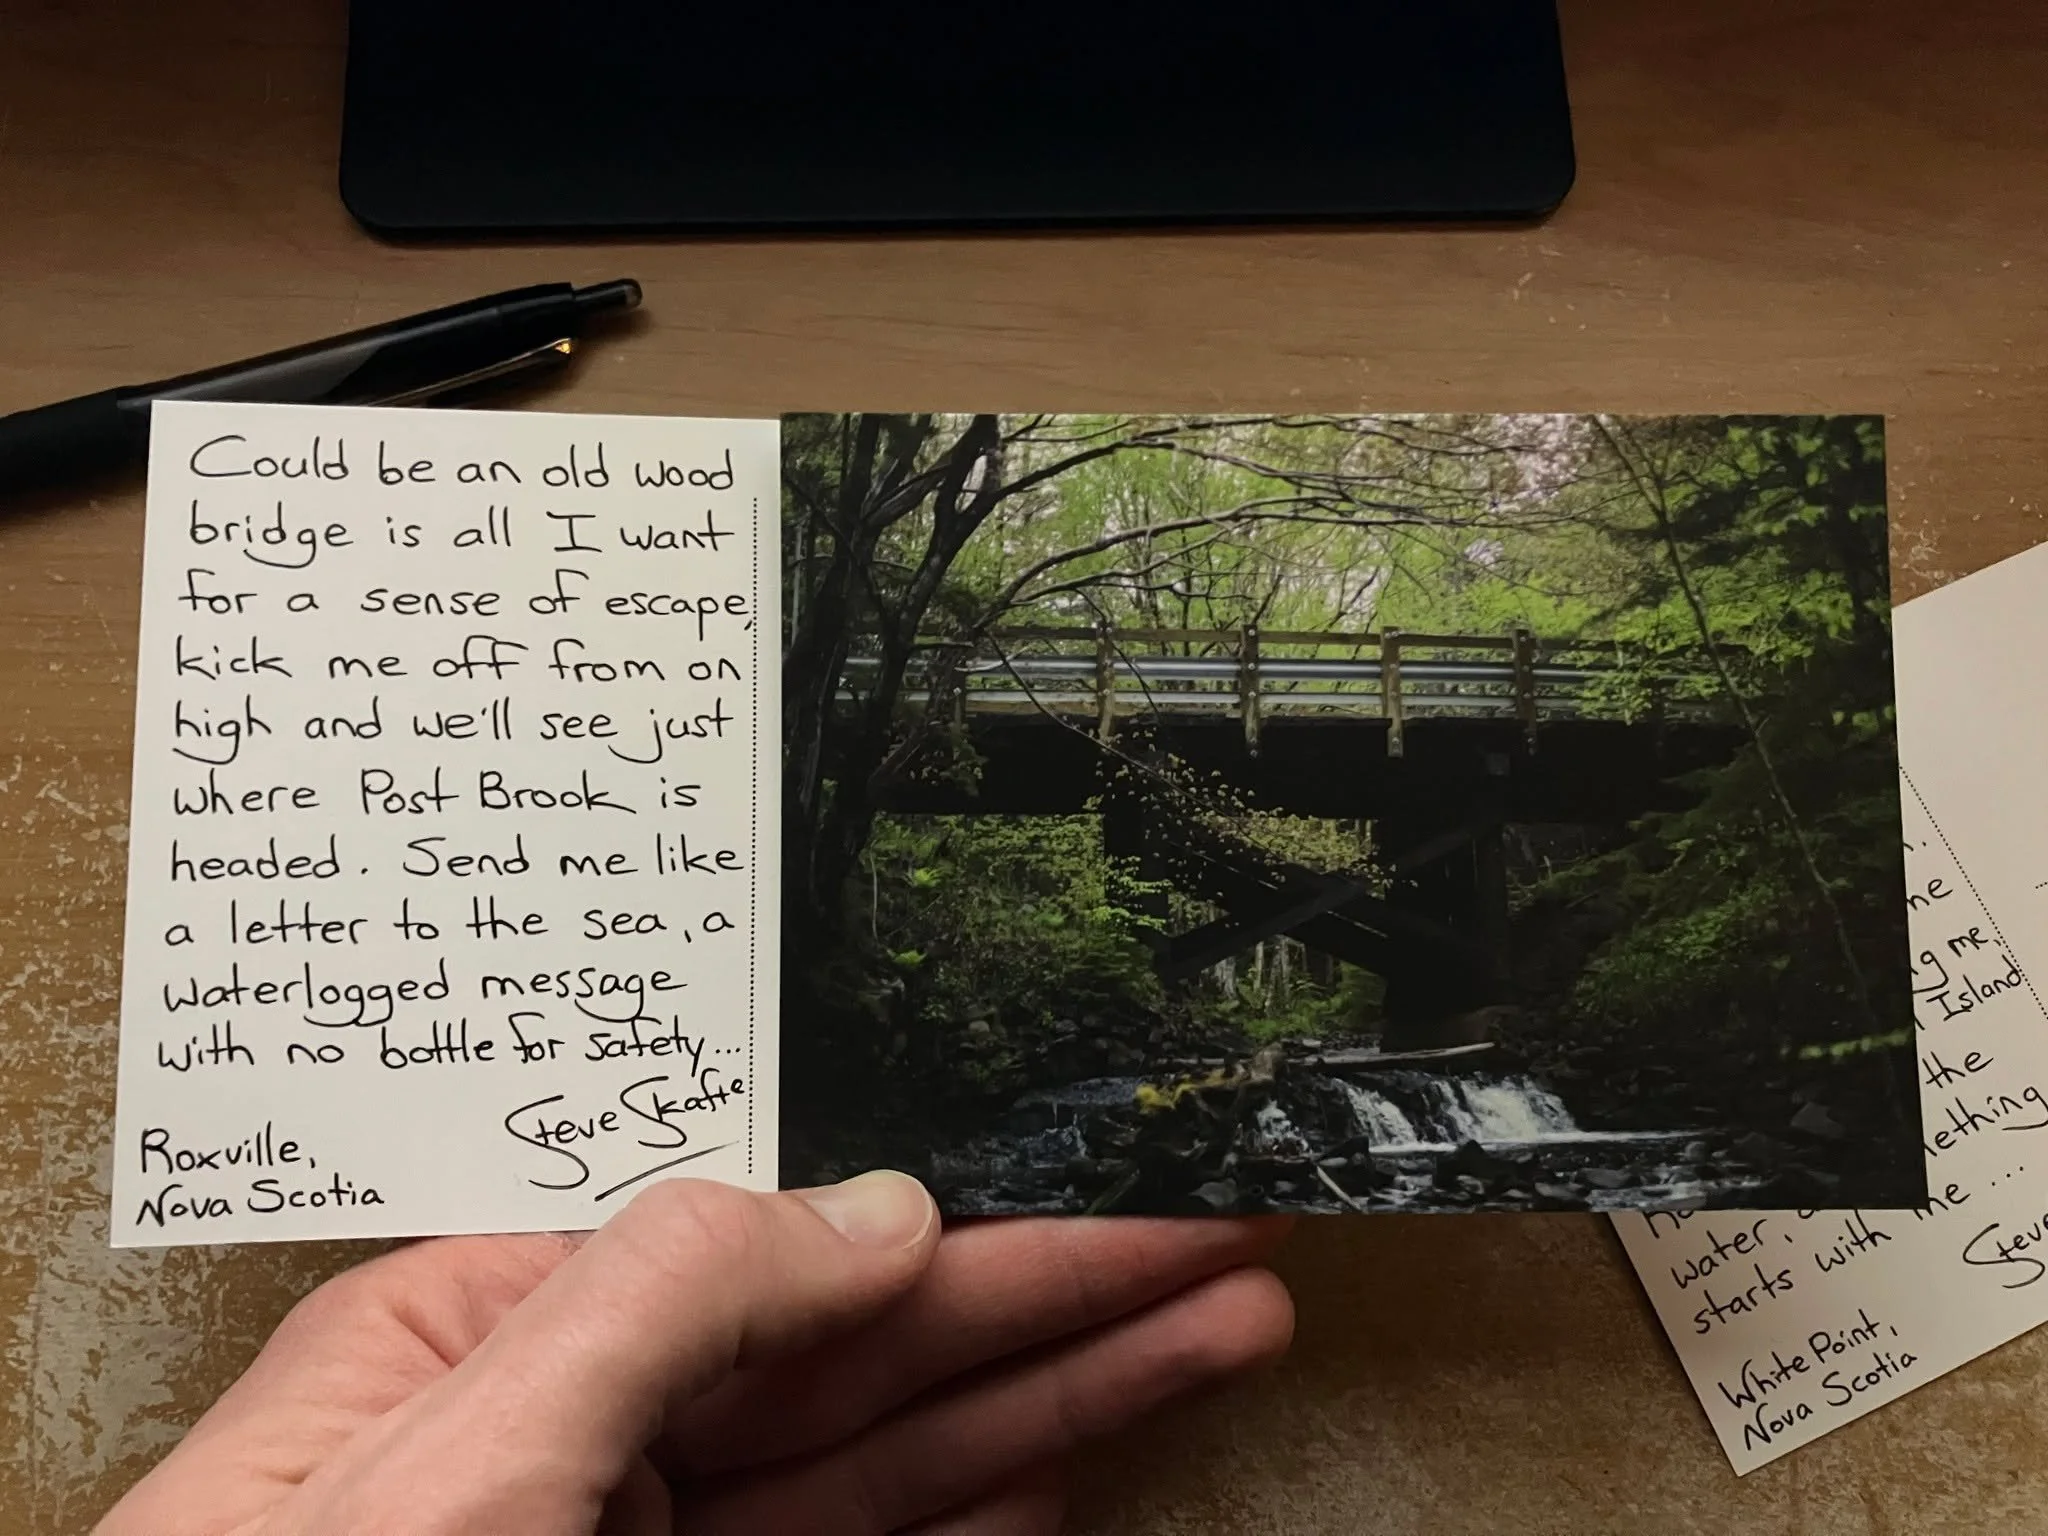 Could be an old wood
bridge is all I want
for a sense of escape,
kick me off from on
high and we'll see just
where Post Brook is
headed. Send me like
a letter to the sea, a
waterlogged message
with no bottle for safety...
Steve Skafte
Roxville,
Nova Scotia
me,
Island
the
water,
starts with me...
Steve
White Point,
Nova Scotia